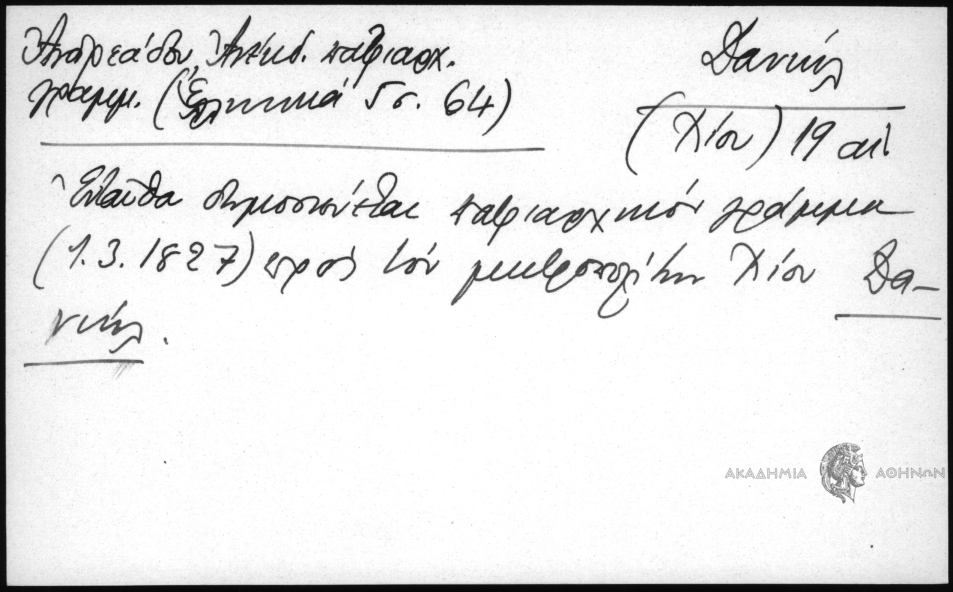 Ἀνδρεάδου, Ἀνέκδ. πατριαρχ.
γράμμ. (Ἑλληνικά 5 σ. 64)
Δανιήλ
(Χίου) 19 αἰ.
Ἐνταῦθα δημοσιεύεται πατριαρχικόν γράμμα
(1.3.1827) πρός τόν μητροπολίτην Χίου Δα-
νιήλ.
ΑΚΑΔΗΜΙΑ ΑΘΗΝΩΝ